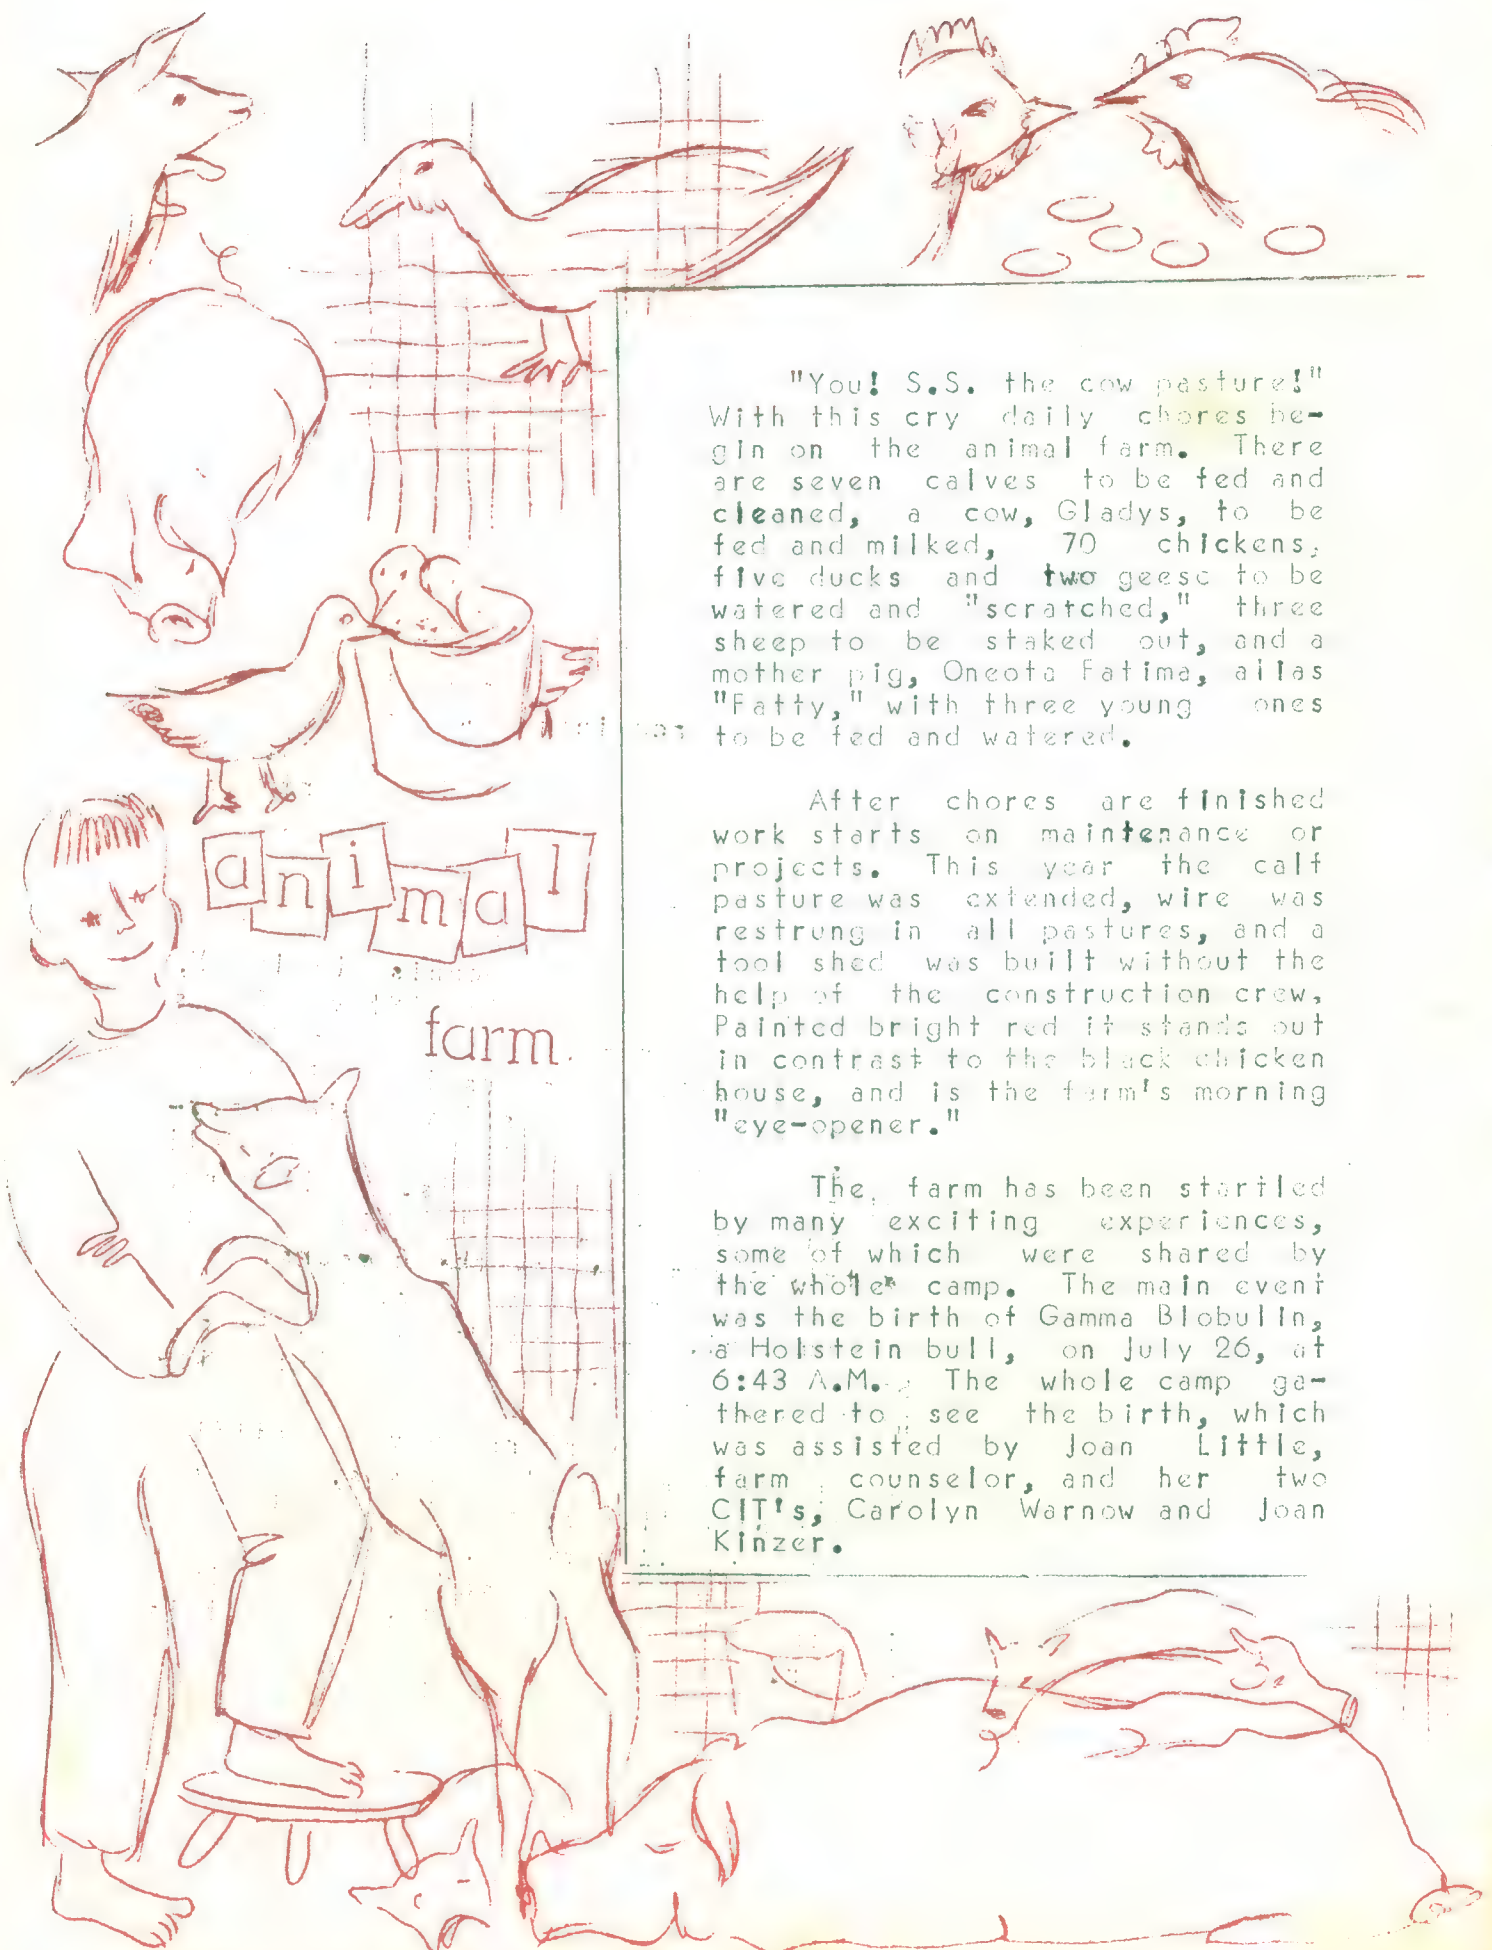 animal
farm
"You! S.S. the cow pasture!"
With this cry daily chores be-
gin on the animal farm. There
are seven calves to be fed and
cleaned, a cow, Gladys, to be
fed and milked, 70 chickens,
five ducks and two geese to be
watered and "scratched," three
sheep to be staked out, and a
mother pig, Oneota Fatima, alias
"Fatty," with three young ones
to be fed and watered.
After chores are finished
work starts on maintenance or
projects. This year the calf
pasture was extended, wire was
restrung in all pastures, and a
tool shed was built without the
help of the construction crew,
Painted bright red it stands out
in contrast to the black chicken
house, and is the farm's morning
"eye-opener."
The farm has been startled
by many exciting experiences,
some of which were shared by
the whole camp. The main event
was the birth of Gamma Blobulin,
a Holstein bull, on July 26, at
6:43 A.M. The whole camp ga-
thered to see the birth, which
was assisted by Joan Little,
farm counselor, and her two
CIT's, Carolyn Warnow and Joan
Kinzer.